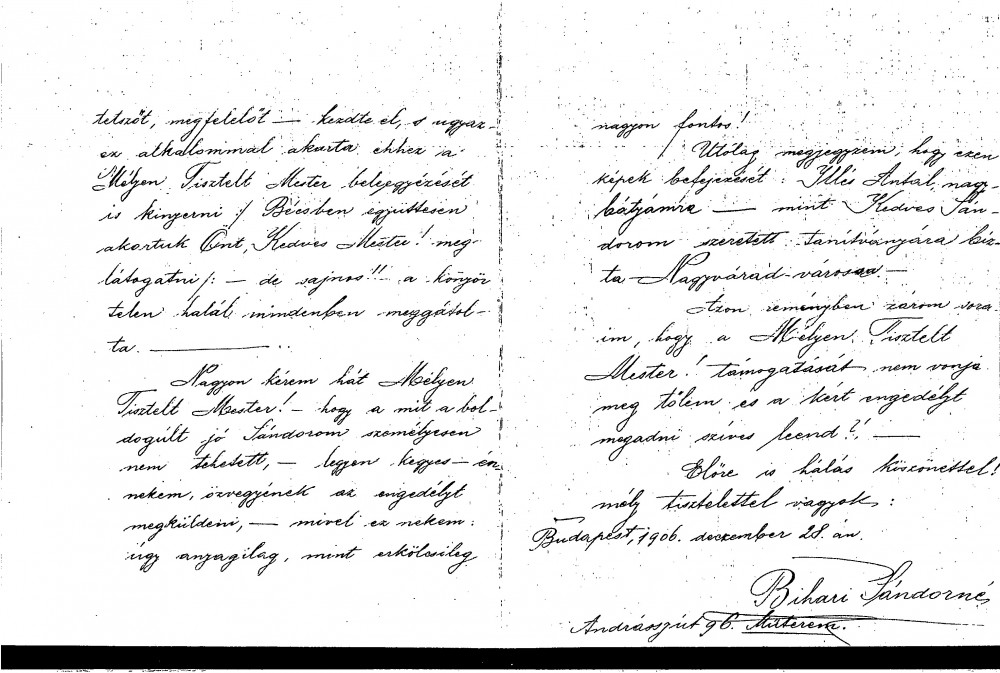 tetszőt, megfelelőt — kezdte el, s ugyan-
ez alkalommal akarta ehhez a
Mélyen Tisztelt Mester beleegyézését
is kinyerni :/ Bécsben együttesen
akartuk Önt, Kedves Mester! meg-
látogatni /: — de sajnos!!! a könyör
telen halál mindenben meggátol-
ta. ———
Nagyon kérem hát Mélyen
Tisztelt Mester! — hogy a mit a bol-
dogúlt jó Sándorom személyesen
nem tehetett, — legyen kegyes — én-
nekem, özvegyének az engedélyt
megküldeni, — mivel ez nekem:
úgy anyagilag, mint erkölcsileg
nagyon fontos!
Utólag megjegyzem, hogy ezen
képek befejezését: Illés Antal, nagy-
bátyámra — mint Kedves Sán-
dorom szeretett tanítványára bíz-
ta Nagyvárad városa —
Azon reményben zárom sora-
im, hogy a Mélyen Tisztelt
Mester! támogatását nem vonja
meg tőlem és a kért engedélyt
megadni szíves leend?! —
Előre is hálás köszönettel!
mély tisztelettel vagyok:
Budapest, 1906. deczember 28. án.
Bihari Sándorné
Andrássyút 96. Műterem.